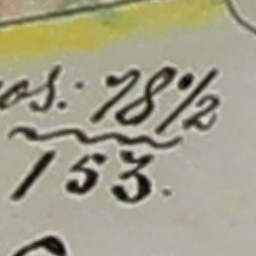 os: 78½
153.